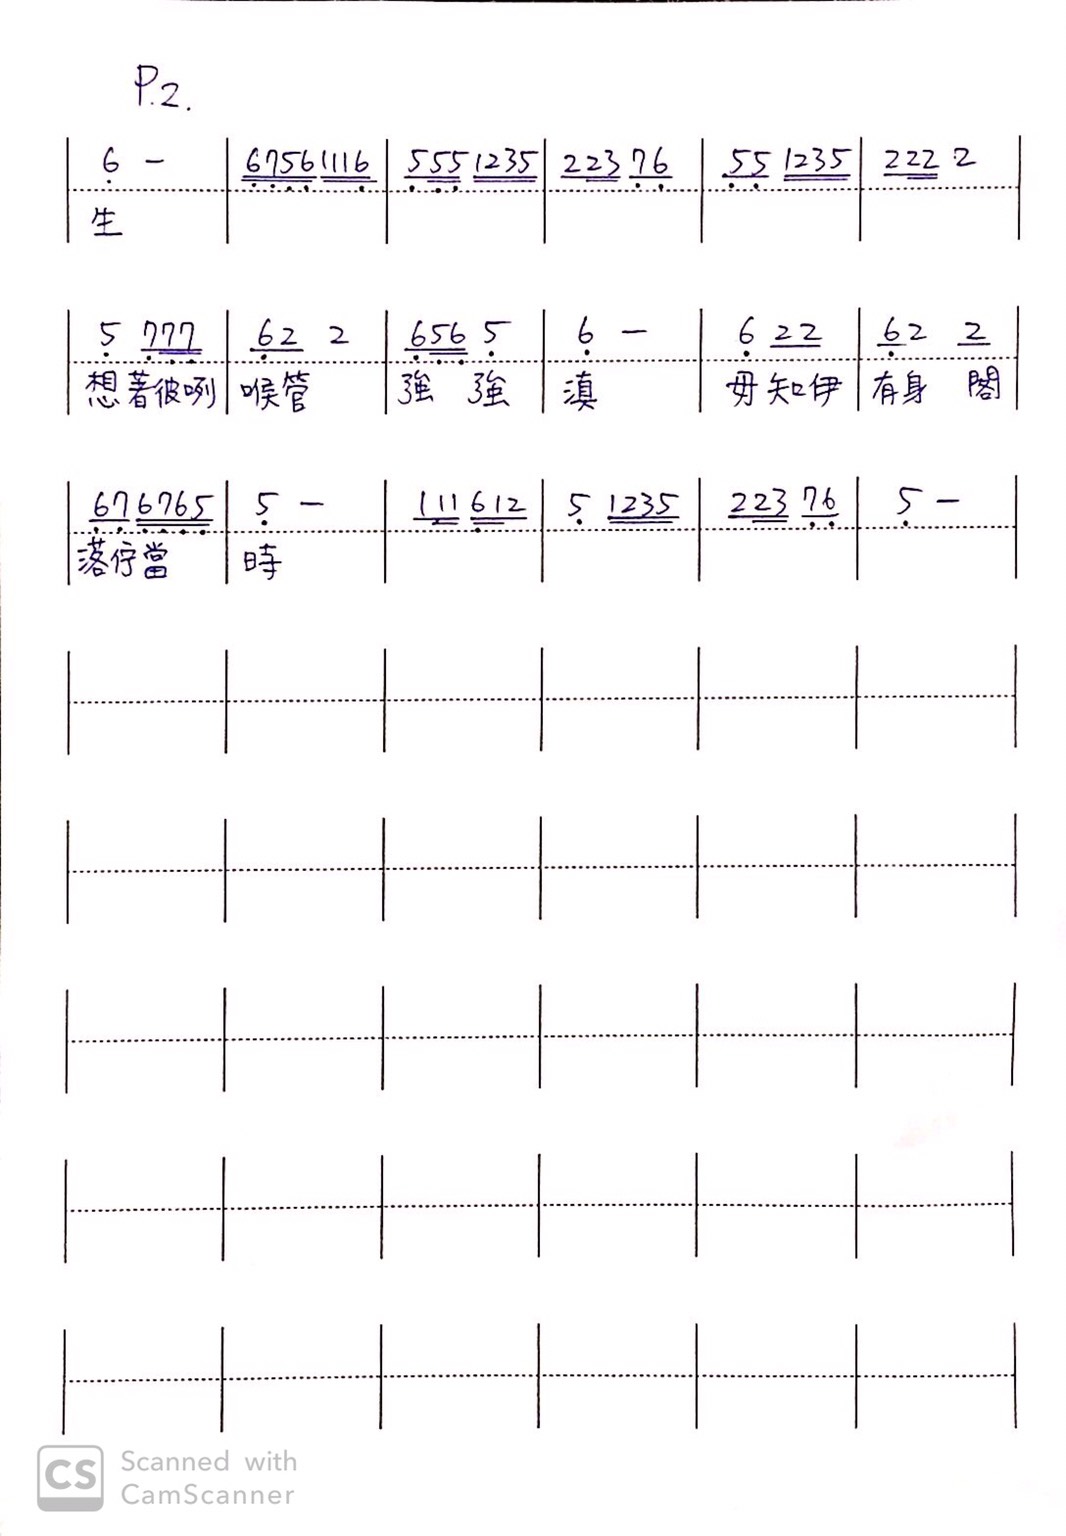 P.2.
6 - 67561116 5551235 22376 551235 2222
生
5 777 62 2 656 5 6 - 6 22 62 2
想著彼咧 喉管 強 強 滇 毋知伊 有身 閣
676765 5 - 111612 5 1235 22376 5 -
落佇當 時
CS Scanned with
CamScanner